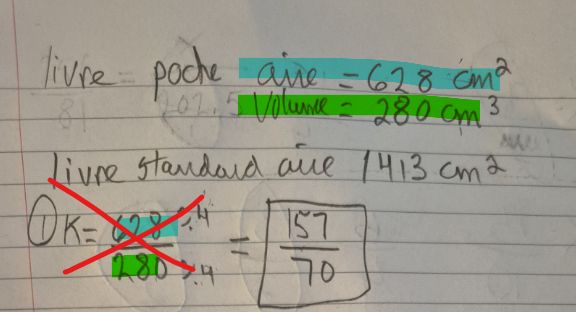 livre = poche aire = 628 cm²
Volume = 280 cm³
livre standard aire 1413 cm²
① K = 628 ÷4 / 280 ÷4 = 157 / 70